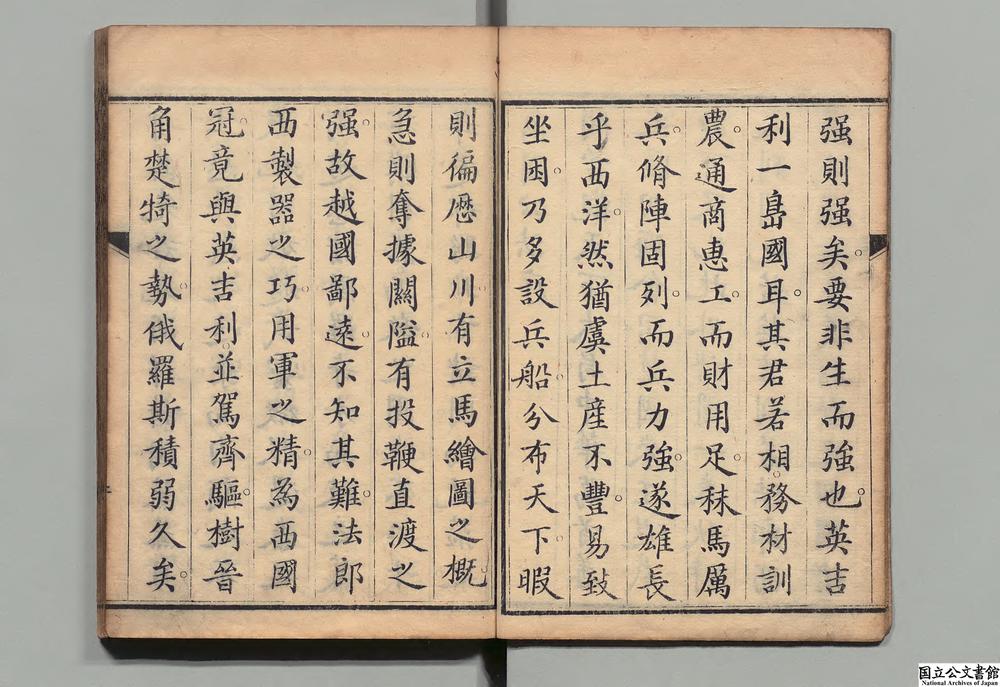 强則强矣。要非生而強也。英吉
利一島國耳。其君若相。務材訓
農。通商惠工。而財用足。秣馬厲
兵。脩陣固列。而兵力強。遂雄長
乎西洋。然猶虞土産不豐。易致
坐困。乃多設兵船。分布天下。暇
則徧歷山川。有立馬繪圖之概。
急則奪據關隘。有投鞭直渡之
强。故越國鄙遠。不知其難。法郎
西製器之巧。用軍之精。為西國
冠。竟與英吉利並駕齊驅。樹晉
角楚犄之勢。俄羅斯積弱久矣。
国立公文書館
National Archives of Japan